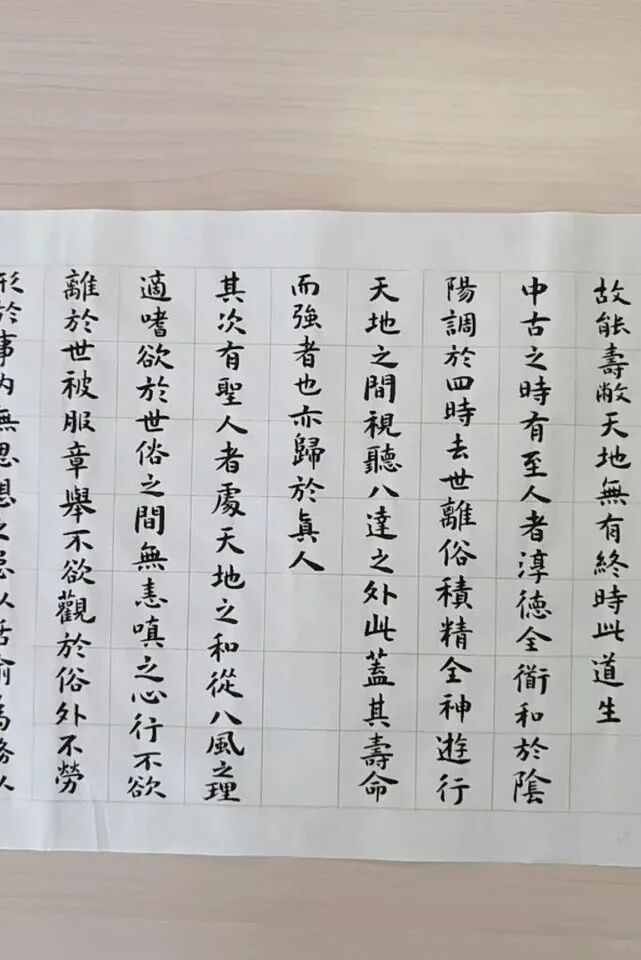 故能壽敝天地無有終時此道生
中古之時有至人者淳德全衜和於陰
陽調於四時去世離俗積精全神遊行
天地之間視聽八達之外此蓋其壽命
而強者也亦歸於眞人
其次有聖人者處天地之和從八風之理
適嗜欲於世俗之間無恚嗔之心行不欲
離於世被服章舉不欲觀於俗外不勞
形於事內無思想之